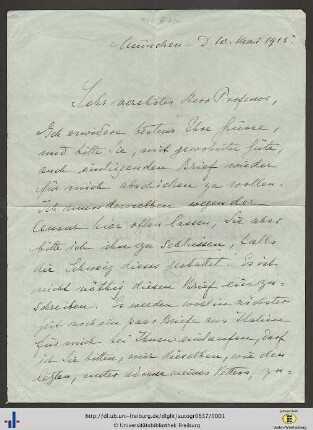 München – D. 10. Mai 1915.
Sehr verehrter Herr Professor,
Ich erwidere bestens Ihre Grüsse,
und bitte Sie, mit gewohnter Güte,
auch einliegenden Brief wieder
für mich abschicken zu wollen.
Ich muss denselben wegen der
Censur hier offen lassen, Sie aber
bitte ich ihn zu schliessen, falls
die Schweiz dieses gestattet. Es ist
nicht nöthig diesen Brief einzu-
schreiben. Es werden wohl in nächster
Zeit noch ein paar Briefe aus Italien
für mich bei Ihnen einlaufen, darf
ich Sie bitten, mir dieselben, wie den
letzten, unter meines Vetters, zu-
http://dl.ub.uni-freiburg.de/diglit/autogr0837/0001
© Universitätsbibliothek Freiburg